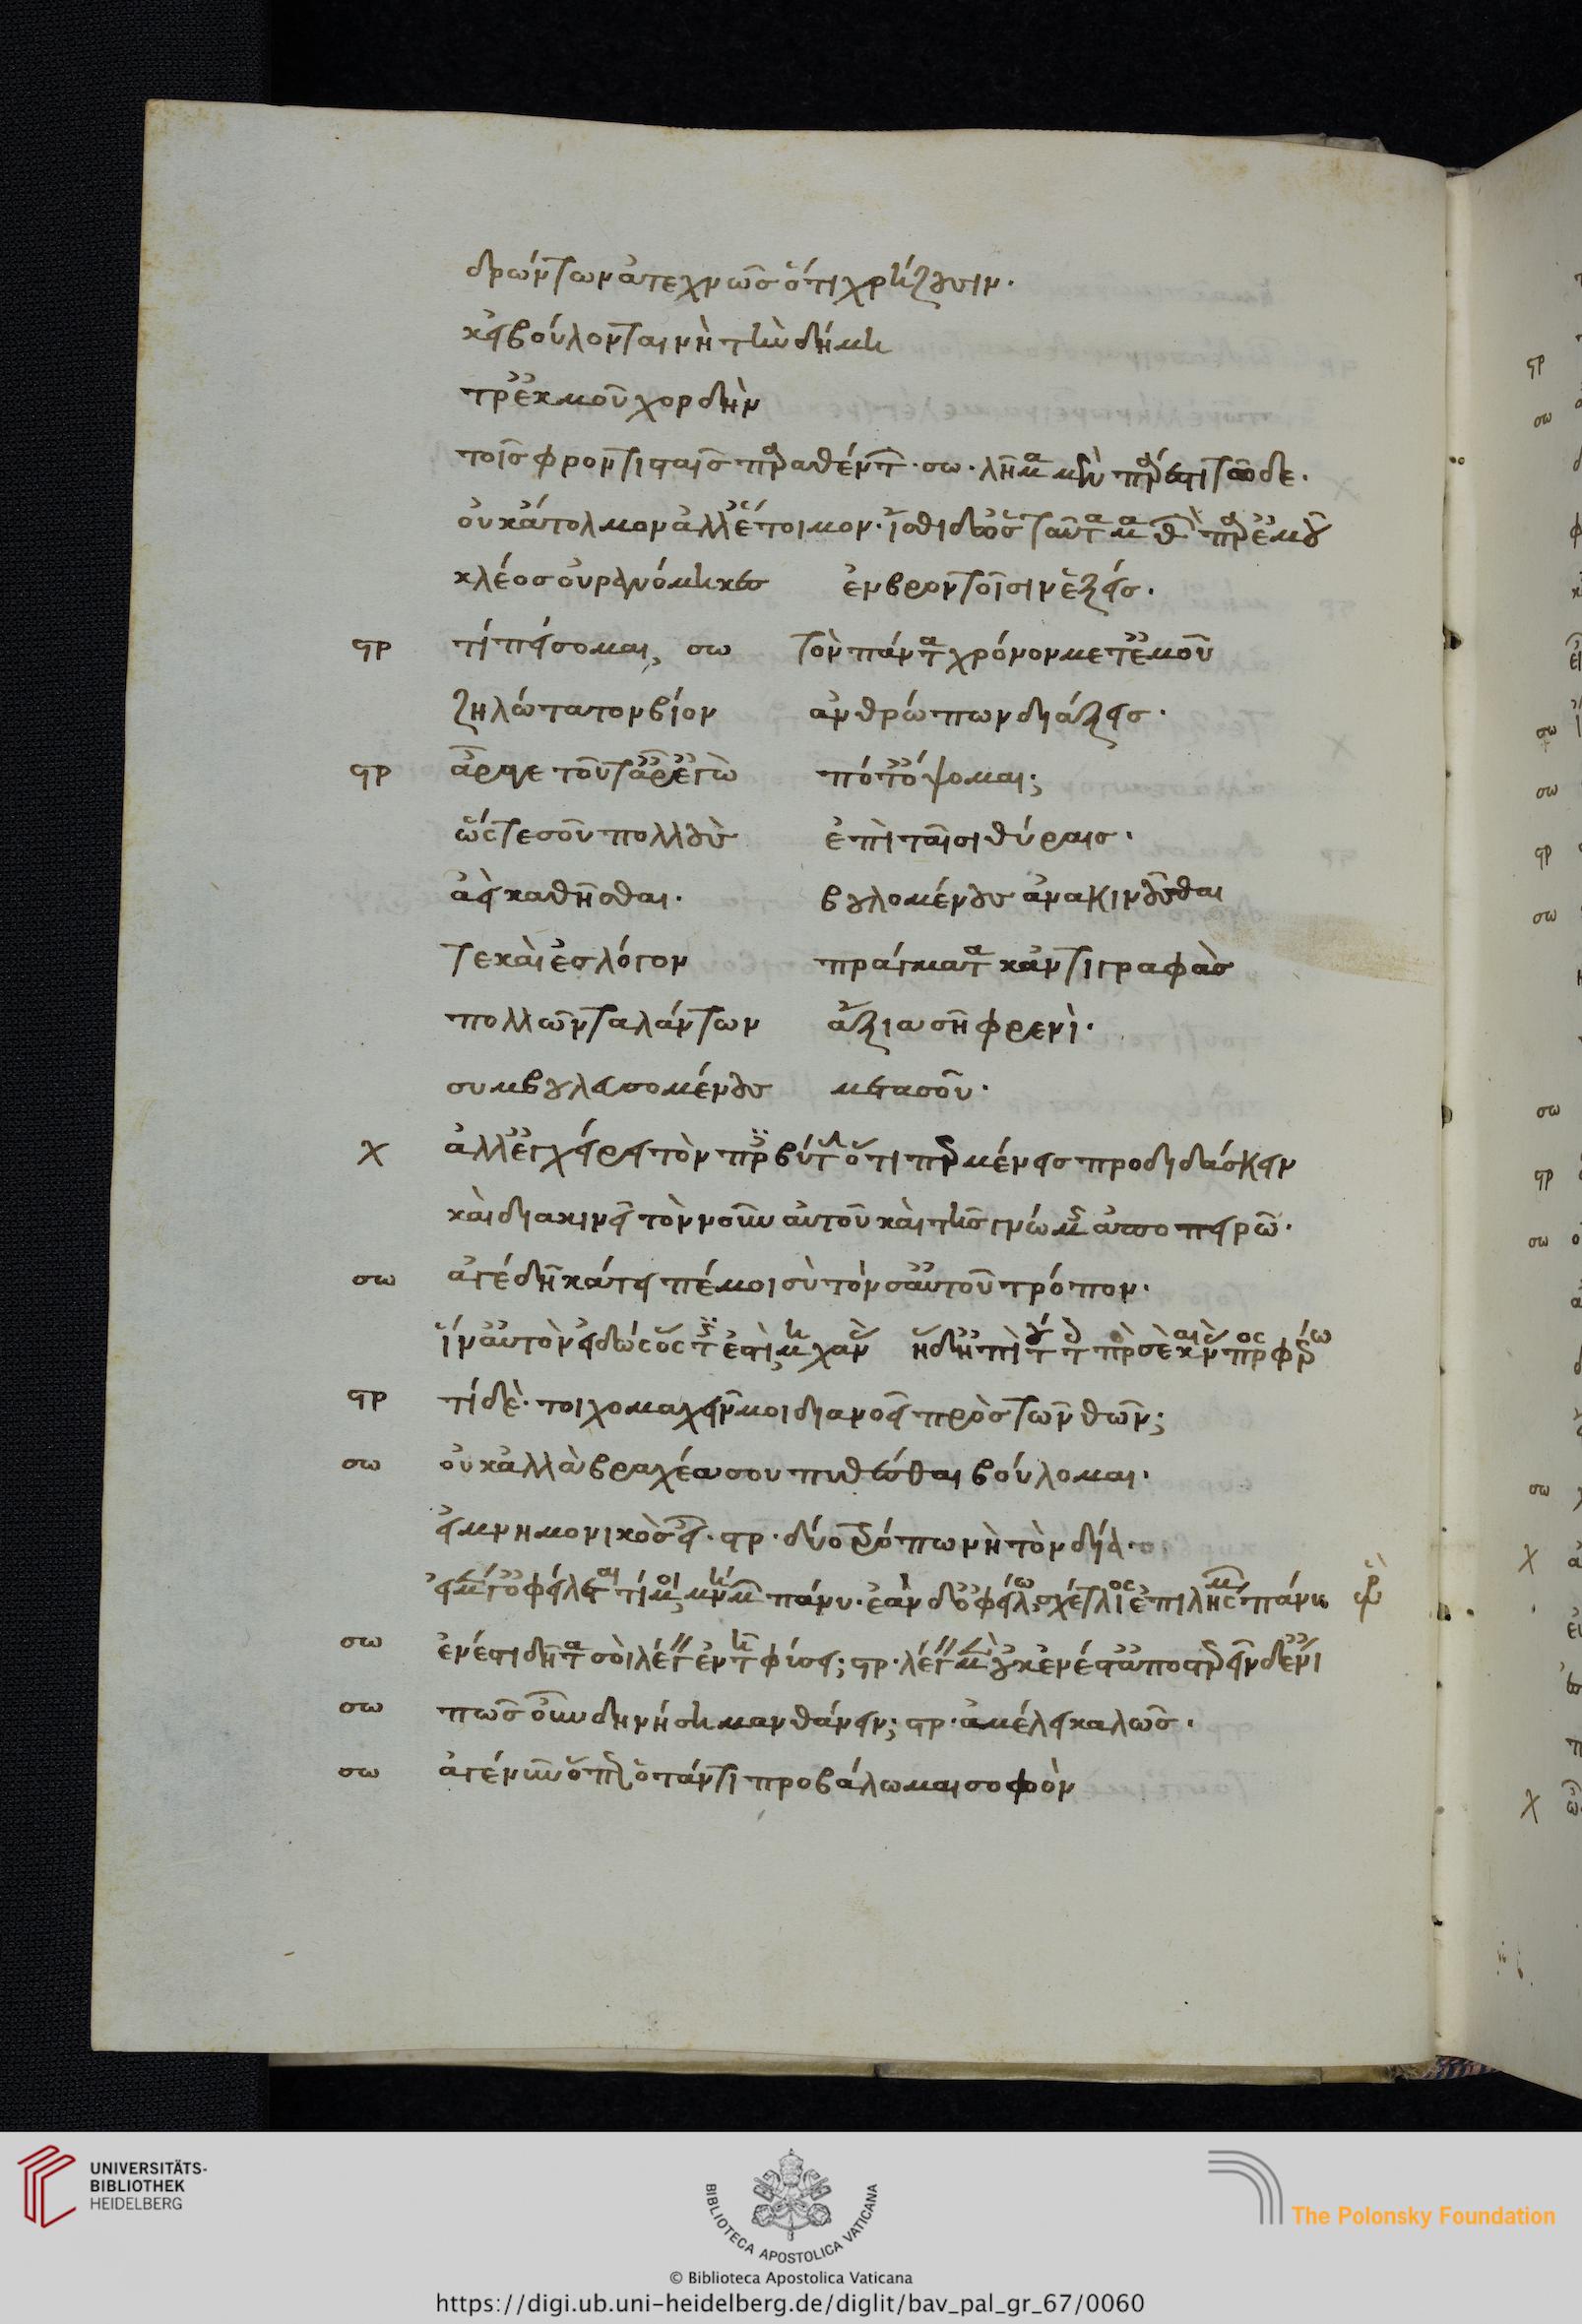 δρώντων ἀτεχνῶς ὅτι χρήζουσιν.
κεἰ βούλονται νὴ τὴν δήμη
τρ' ἔκ μου χορδὴν
τοῖς φροντισταῖς παραθέντων. σω. λῆμα μὲν πάρεστι τῶδε.
οὐκ ἄτολμον ἀλλ' ἕτοιμον. ἴσθι δ' ὡς ταῦτα μαθὼν παρ' ἐμοῦ
κλέος οὐρανόμηκες ἐν βροντοῖσιν ἕξεις.
στρ τί πείσομαι; σω τὸν πάντα χρόνον μετ' ἐμοῦ
ζηλώτατον βίον ἀνθρώπων διάξεις.
στρ ἆρά γε τοῦτ' ἄρ' ἐγὼ πότ' ὄψομαι;
ὥστε σοῦ πολλοὺς ἐπὶ ταῖσι θύραις.
ἀεὶ καθῆσθαι. βουλομένους ἀνακινοῦσθαι
τε καὶ ἐς λόγον πράγματα κἀντιγραφὰς
πολλῶν ταλάντων ἄξια σῆ φρενὶ.
συμβουλευσομένους μετὰ σοῦ.
χ ἀλλ' ἐγχείρει τὸν πρεσβύτην ὅ τι περ μέλλεις προδιδάσκειν
καὶ διακίνει τὸν νοῦν αὐτοῦ καὶ τῆς γνώμης ἀποπειρῶ.
σω ἄγε δὴ κάτειπέ μοι σὺ τὸν σαυτοῦ τρόπον.
ἵν' αὐτὸν εἰδὼς ὅστις ἐστὶ μηχανὰς ἤδη 'πὶ τούτοις πρὸς σὲ καινὰς προσφέρω
στρ τί δὲ. τοιχομαχεῖν μοι διανοεῖ πρὸς τῶν θεῶν;
σω οὐκ ἀλλὰ βραχέα σου πυθέσθαι βούλομαι.
εἰ μνημονικὸς εἶ. στρ. δύο τρόπω νὴ τὸν δία.
εἰ μὲν γ' ὀφείλεταί τί μοι μνήμων πάνυ. ἐὰν δ' ὀφείλω σχέτλιος ἐπιλήσμων πάνυ
σω ἔνεστι δῆτα σοὶ λέγειν ἐν τῇ φύσει; στρ. λέγειν μὲν οὐκ ἔνεστ' ἀποστερεῖν δ' ἔνι
σω πῶς οὖν δυνήση μανθάνειν; στρ. ἀμέλει καλῶς.
σω ἄγε νῦν ὅπως ὅταν τι προβάλωμαι σοφὸν
UNIVERSITÄTS-
BIBLIOTHEK
HEIDELBERG
BIBLIOTECA APOSTOLICA VATICANA
The Polonsky Foundation
© Biblioteca Apostolica Vaticana
https://digi.ub.uni-heidelberg.de/diglit/bav_pal_gr_67/0060